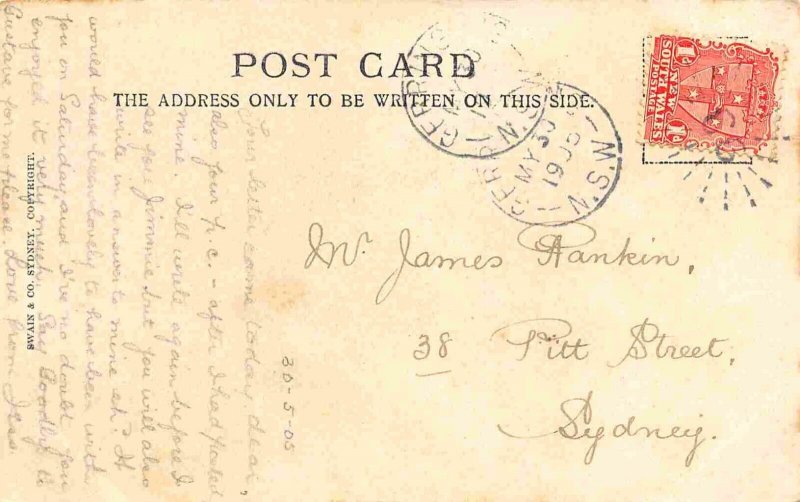 POST CARD
THE ADDRESS ONLY TO BE WRITTEN ON THIS SIDE.
GERRINGONG
N.S.W
GERRI
MY 30
1905
N.S.W
1D NEW 1D
SOUTH WALES
POSTAGE
Mr. James Rankin,
38 Pitt Street,
Sydney.
30-5-05
Your letter came today dear,
also your p.c. - after I had posted
mine. I'll write again before I
see you Jimmie but you will also
write in answer to mine eh? It
would have been lovely to have been with
you on Saturday and I've no doubt you
enjoyed it very much. Say Goodbye to
Gustave for me please. Love from Jess.
SWAIN & CO. SYDNEY. COPYRIGHT.